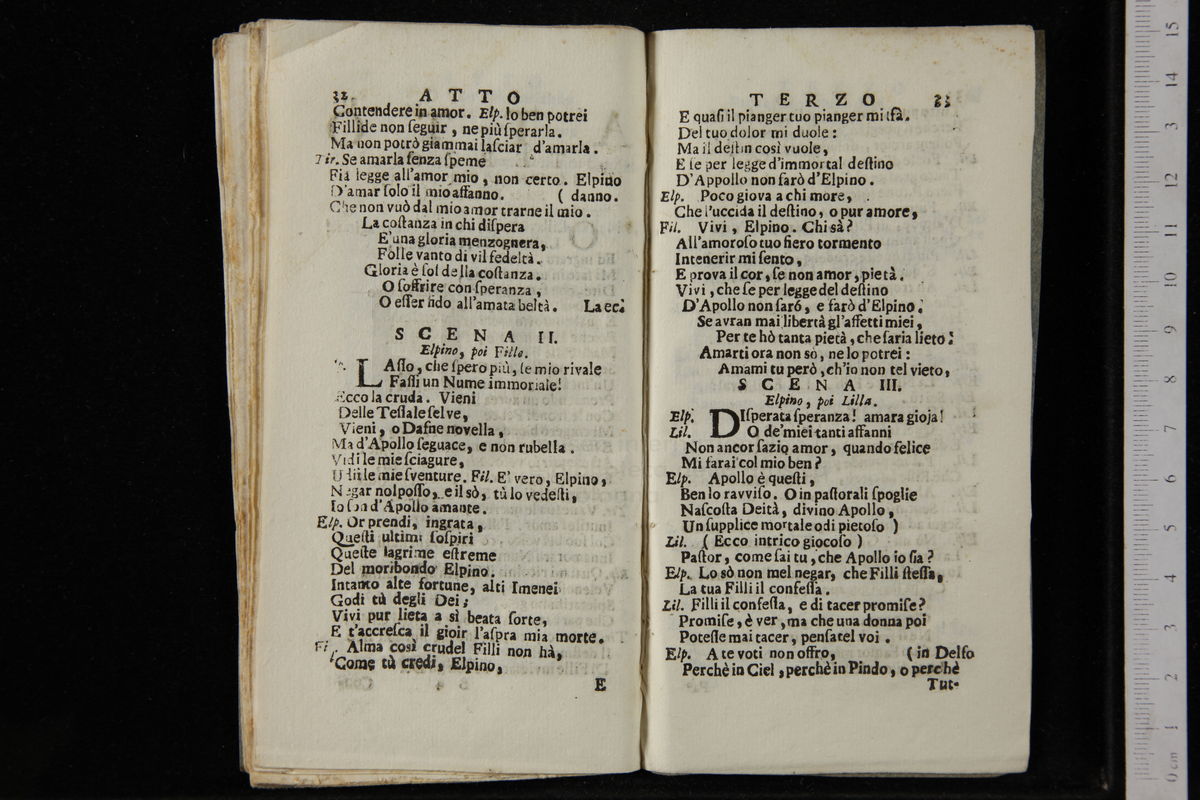 32. ATTO
Contendere in amor. Elp. Io ben potrei
Fillide non ſeguir, ne più ſperarla.
Ma non potrò giammai laſciar d'amarla.
Tir. Se amarla ſenza ſpeme
Fia legge all'amor mio, non certo. Elpino
D'amar ſolo il mio affanno. ( danno.
Che non vuò dal mio amor trarne il mio.
La coſtanza in chi diſpera
E' una gloria menzognera,
Folle vanto di vil fedeltà.
Gloria è ſol della coſtanza.
O ſoffrire con ſperanza,
O eſſer fido all'amata beltà. La ec.
SCENA II.
Elpino, poi Fille.
LAſſo, che ſpero più, ſe mio rivale
Faſſi un Nume immortale!
Ecco la cruda. Vieni
Delle Teſſale ſelve,
Vieni, o Dafne novella,
Ma d'Apollo ſeguace, e non rubella.
Vidi le mie ſciagure,
Udii le mie ſventure. Fil. E' vero, Elpino,
Negar nol poſſo, e il sò, tù lo vedeſti,
Io ſon d'Apollo amante.
Elp. Or prendi, ingrata,
Queſti ultimi ſoſpiri
Queſte lagrime eſtreme
Del moribondo Elpino.
Intanto alte fortune, alti Imenei
Godi tù degli Dei;
Vivi pur lieta a sì beata ſorte,
E t'accreſca il gioir l'aſpra mia morte.
Fil. Alma così crudel Filli non hà,
Come tù credi, Elpino,
E
TERZO 33
E quaſi il pianger tuo pianger mi fà.
Del tuo dolor mi duole:
Ma il deſtin così vuole,
E ſe per legge d'immortal deſtino
D'Appollo non farò d'Elpino.
Elp. Poco giova a chi more,
Che l'uccida il deſtino, o pur amore,
Fil. Vivi, Elpino. Chi sà?
All'amoroſo tuo fiero tormento
Intenerir mi ſento,
E prova il cor, ſe non amor, pietà.
Vivi, che ſe per legge del deſtino
D'Apollo non ſaró, e ſarò d'Elpino.
Se avran mai libertà gl'affetti miei,
Per te hò tanta pietà, che ſaria lieto:
Amarti ora non sò, ne lo potrei:
Amami tu però, ch'io non tel vieto,
SCENA III.
Elpino, poi Lilla.
Elp. DIſperata ſperanza! amara gioja!
Lil. O de' miei tanti affanni
Non ancor ſazio amor, quando felice
Mi farai col mio ben?
Elp. Apollo è queſti,
Ben lo ravviſo. O in paſtorali ſpoglie
Naſcoſta Deità, divino Apollo,
Un ſupplice mortale odi pietoſo )
Lil. ( Ecco intrico giocoſo )
Paſtor, come ſai tu, che Apollo io ſia?
Elp. Lo sò non mel negar, che Filli ſteſſa,
La tua Filli il confeſſa.
Lil. Filli il confeſſa, e di tacer promiſe?
Promiſe, è ver, ma che una donna poi
Poteſſe mai tacer, penſatel voi.
Elp. A te voti non offro, ( in Delfo
Perchè in Ciel, perchè in Pindo, o perchè
Tut-